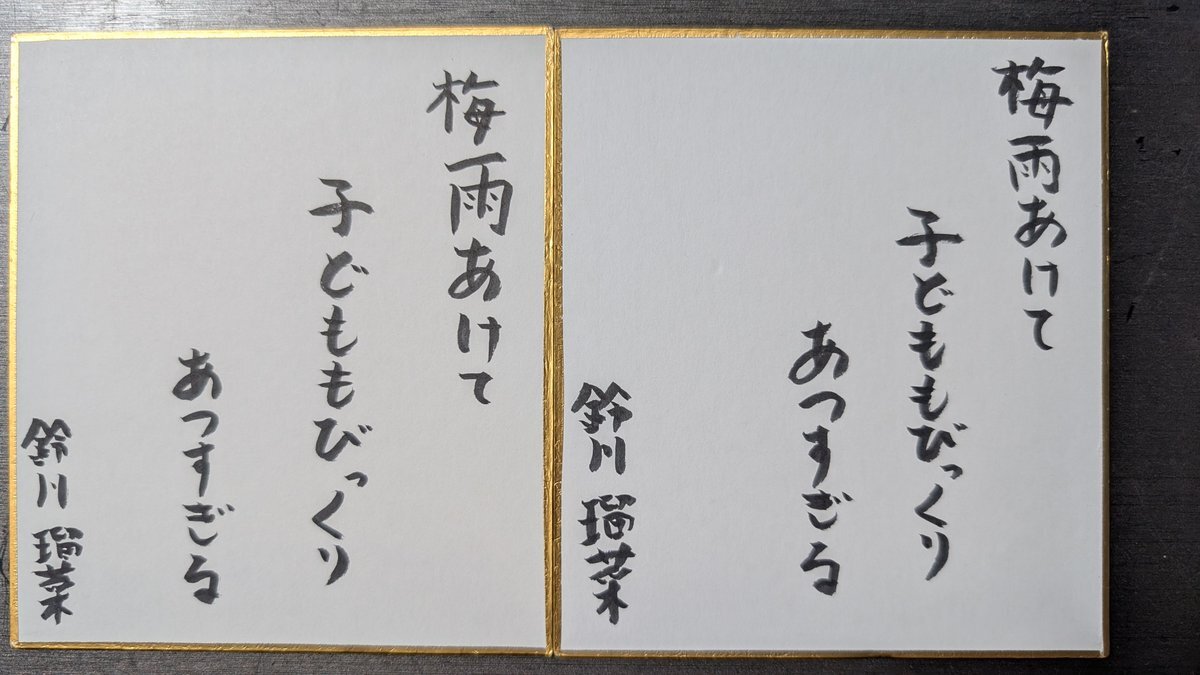 梅雨あけて
子どももびっくり
あつすぎる
鈴川 瑠菜
梅雨あけて
子どももびっくり
あつすぎる
鈴川 瑠菜